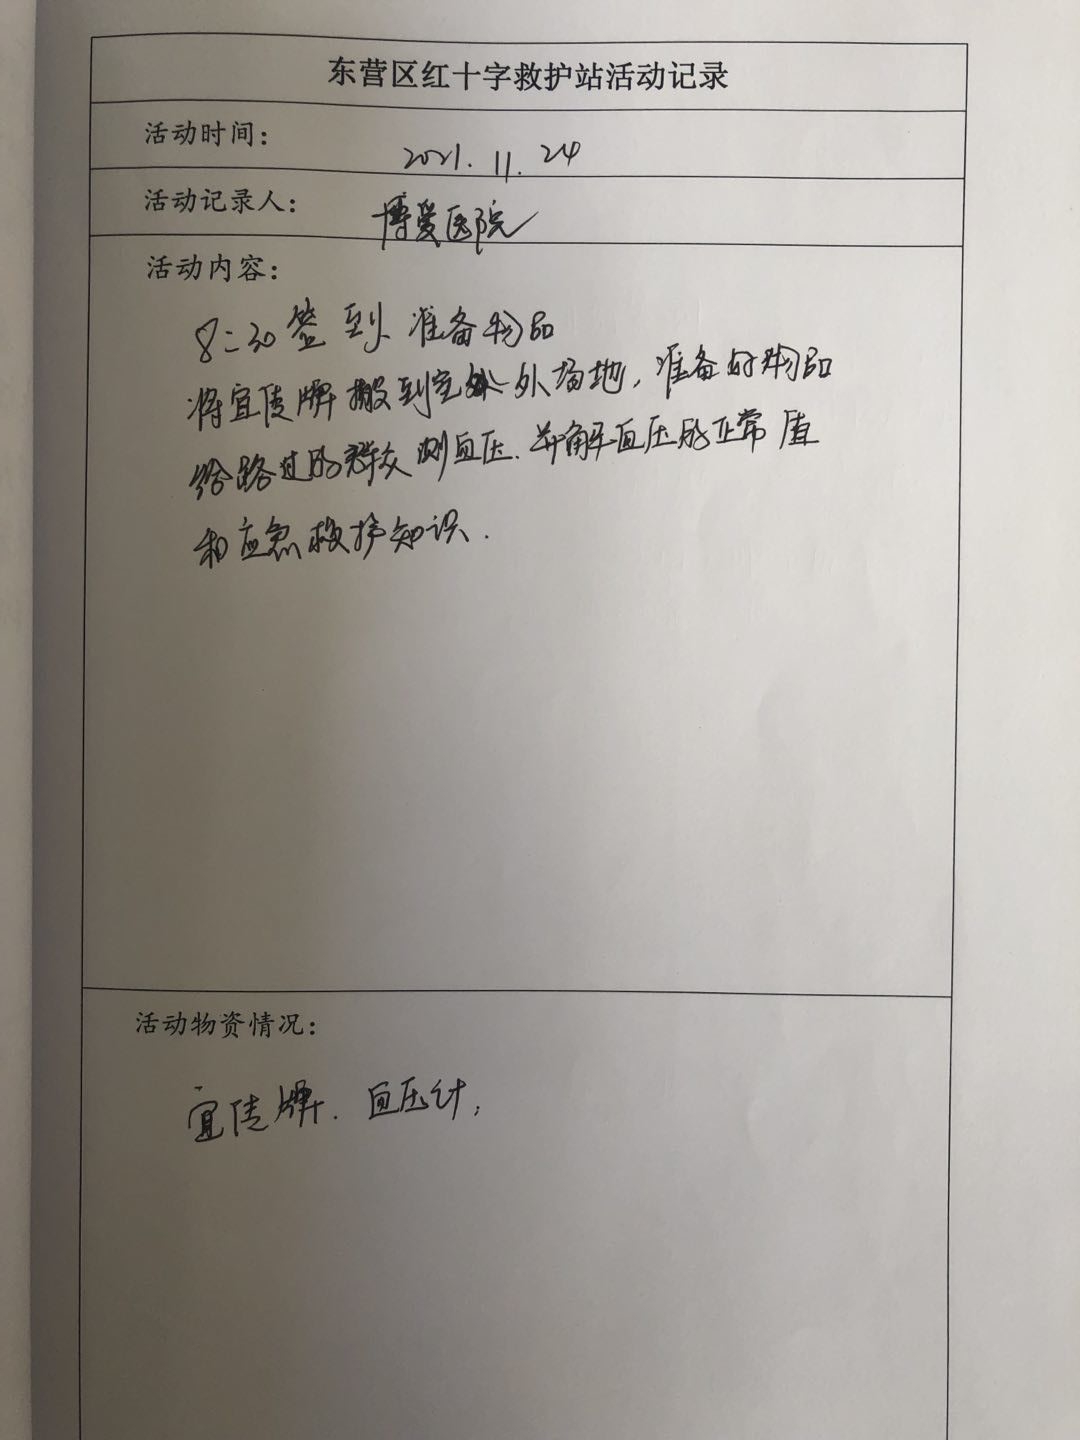 东营区红十字救护站活动记录
活动时间：
2021.11.24
活动记录人：
博爱医院
活动内容：
8:30签到 准备物品
将宣传牌搬到室外场地，准备好物品
给路过的群众测血压.并解血压的正常值
和应急救护知识.
活动物资情况：
宣传牌.血压计,